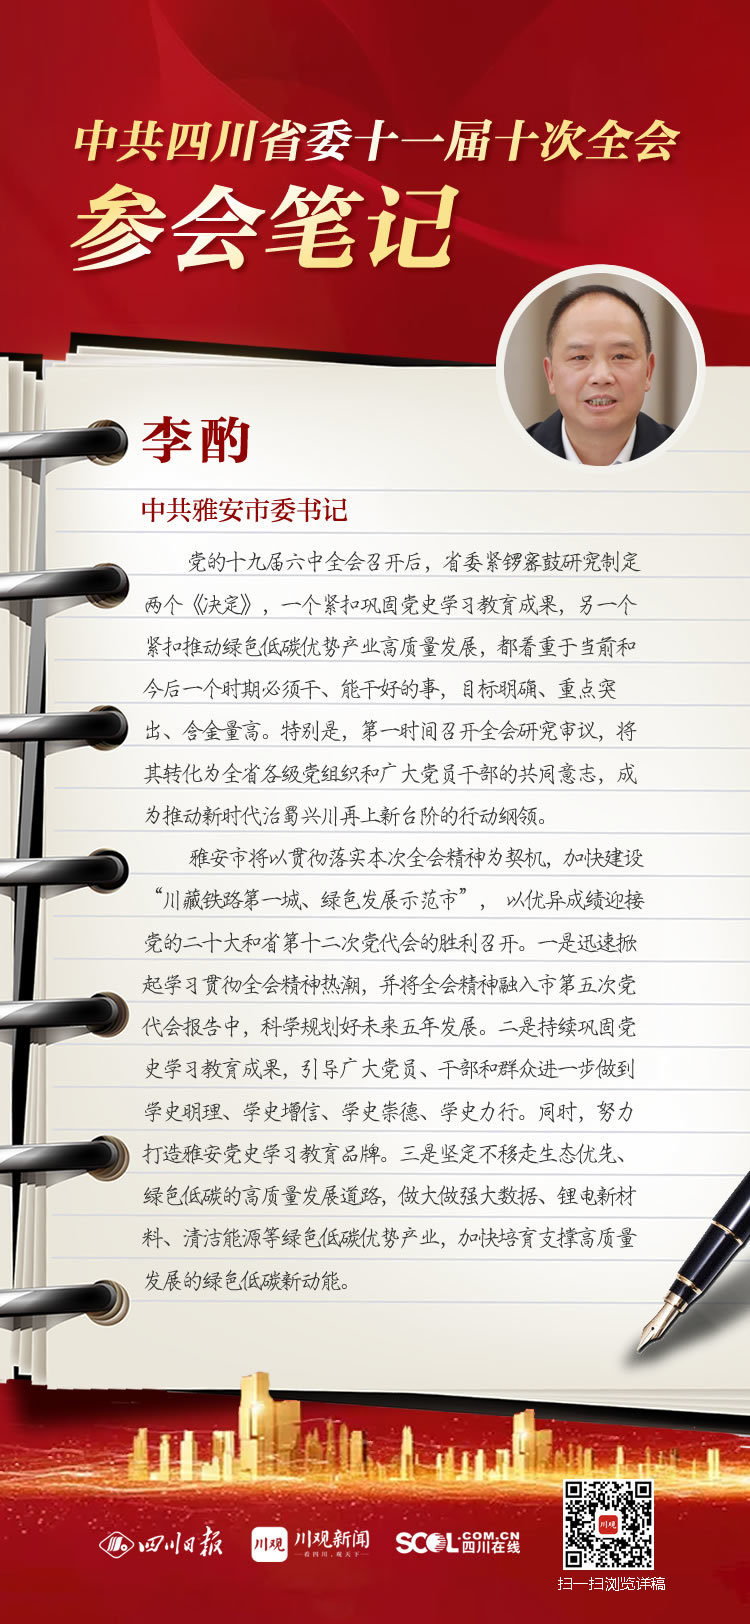 中共四川省委十一届十次全会
参会笔记
李酌
中共雅安市委书记
党的十九届六中全会召开后，省委紧锣密鼓研究制定
两个《决定》，一个紧扣巩固党史学习教育成果，另一个
紧扣推动绿色低碳优势产业高质量发展，都着重于当前和
今后一个时期必须干、能干好的事，目标明确、重点突
出、含金量高。特别是，第一时间召开全会研究审议，将
其转化为全省各级党组织和广大党员干部的共同意志，成
为推动新时代治蜀兴川再上新台阶的行动纲领。
雅安市将以贯彻落实本次全会精神为契机，加快建设
“川藏铁路第一城、绿色发展示范市”，以优异成绩迎接
党的二十大和省第十二次党代会的胜利召开。一是迅速掀
起学习贯彻全会精神热潮，并将全会精神融入市第五次党
代会报告中，科学规划好未来五年发展。二是持续巩固党
史学习教育成果，引导广大党员、干部和群众进一步做到
学史明理、学史增信、学史崇德、学史力行。同时，努力
打造雅安党史学习教育品牌。三是坚定不移走生态优先、
绿色低碳的高质量发展道路，做大做强大数据、锂电新材
料、清洁能源等绿色低碳优势产业，加快培育支撑高质量
发展的绿色低碳新动能。
四川日报
川观
川观新闻
看四川，观天下
SCOL.COM.CN
四川在线
川观
扫一扫浏览详稿